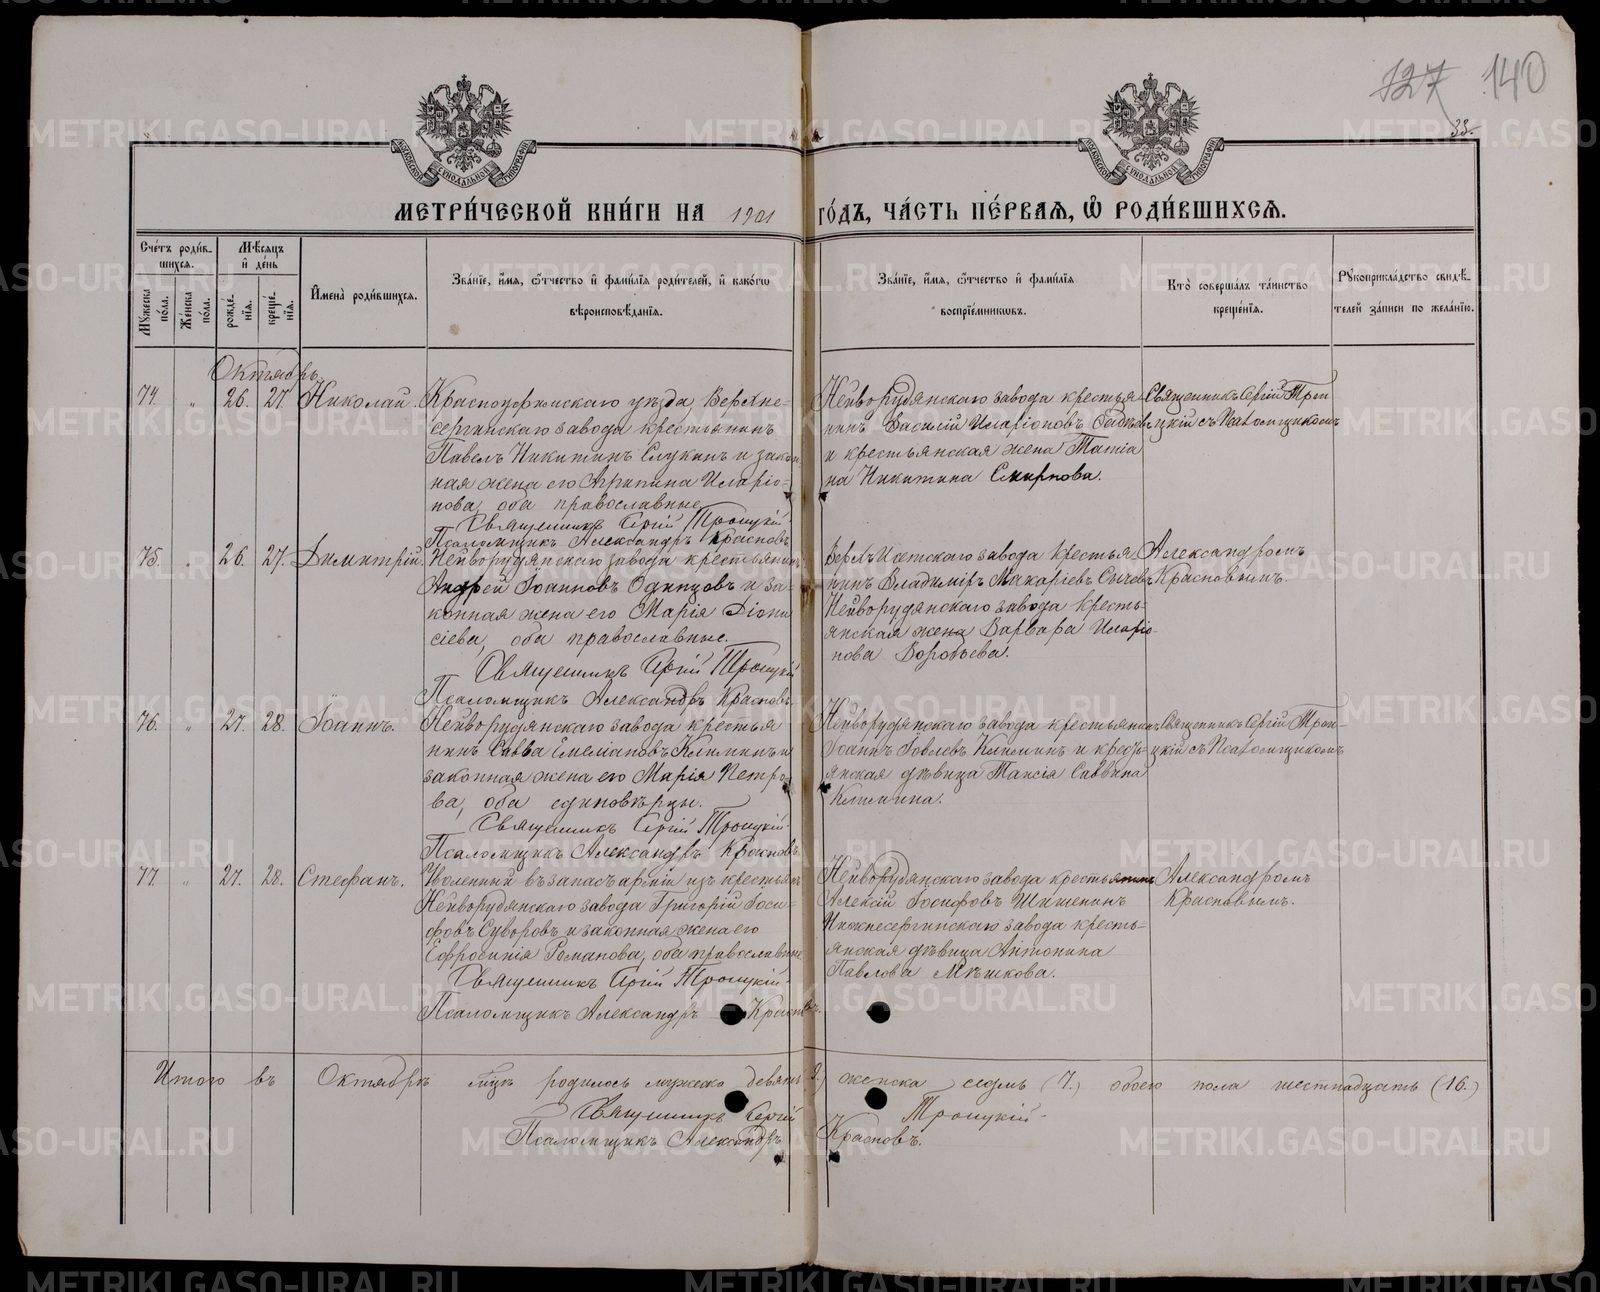 127 140
33.
МЕТРИ́ЧЕСКОЙ КНИ́ГИ НА 1901 ГО́ДЪ, ЧА́СТЬ ПЕ́РВАЯ, Ѡ҆ РОДИ́ВШИХСЯ.
Сче́тъ роди́в-
шихся.
Мѣ́сяцъ
и҆ де́нь
Мꙋжеска по́ла.
Же́нска по́ла.
рожде́-
нїя.
креще́-
нїя.
И҆мена̀ роди́вшихся.
Зва́нїе, и҆́мя, ѻ҆́тчество и҆ фами́лїя роди́телей, и҆ како́гѡ
вѣроисповѣ́данїя.
Зва́нїе, и҆́мя, ѻ҆́тчество и҆ фами́лїя
воспрїе́мникѡвъ.
Кто̀ соверша́лъ та́инство
креще́нїя.
Рꙋкоприкла́дство свидѣ́-
телей за́писи по жела́нїю.
Октябрь.
74. " 26. 27. Николай.
Красноуфимскаго уѣзда, Верхне-
сергинскаго завода крестьянинъ
Павелъ Никитинъ Слукинъ и закон
ная жена его Агрипина Иларіо-
нова, оба православные
Священникъ Сергій Троицкій
Псаломщикъ Александръ Красновъ
Нейворудянскаго завода крестья
нинъ Василій Иларіоновъ
и крестьянская жена Татіа
на Никитина Смирнова.
Священникъ Сергій Трои
цкій съ Псаломщикомъ
75. " 26. 27. Димитрій.
Нейворудянскаго завода крестьянинъ
Андрей Іоанновъ Одинцовъ и за-
конная жена его Марія Діони
сіева, оба православные.
Священникъ Сергій Троицкій
Псаломщикъ Александръ Красновъ
Верхъ-Исетскаго завода крестья
нинъ Владиміръ Макаріевъ Сычевъ
Нейворудянскаго завода кресть-
янская жена Варвара Иларіо-
нова Воробьева.
Александромъ
Красновымъ.
76. " 27. 28. Іоаннъ.
Нейворудянскаго завода крестья
нинъ Савва Емеліановъ Климинъ и
законная жена его Марія Петро
ва, оба единовѣрцы.
Священникъ Сергій Троицкій
Псаломщикъ Александръ Красновъ
Нейворудянскаго завода крестьянинъ
Іоаннъ Іовлевъ Климинъ и кресть-
янская дѣвица Таисія Саввина
Климина.
Священникъ Сергій Трои-
цкій съ Псаломщикомъ
77. " 27. 28. Стефанъ.
Уволенный въ запасъ арміи изъ крестьянъ
Нейворудянскаго завода Григорій Іоси-
фовъ Суворовъ и законная жена его
Ефросинія Романова, оба православные
Священникъ Сергій Троицкій
Псаломщикъ Александръ Красновъ.
Нейворудянскаго завода крестьянинъ
Алексій Іосифовъ Шишенинъ
Нижнесергинскаго завода кресть-
янская дѣвица Антонина
Павлова Мѣшкова.
Александромъ
Красновымъ.
Итого въ Октябрѣ м-цѣ родилось мужеска девять 9.) женска седмь (7.) обоего пола шестнадцать (16.)
Священникъ Сергій Троицкій
Псаломщикъ Александръ Красновъ.